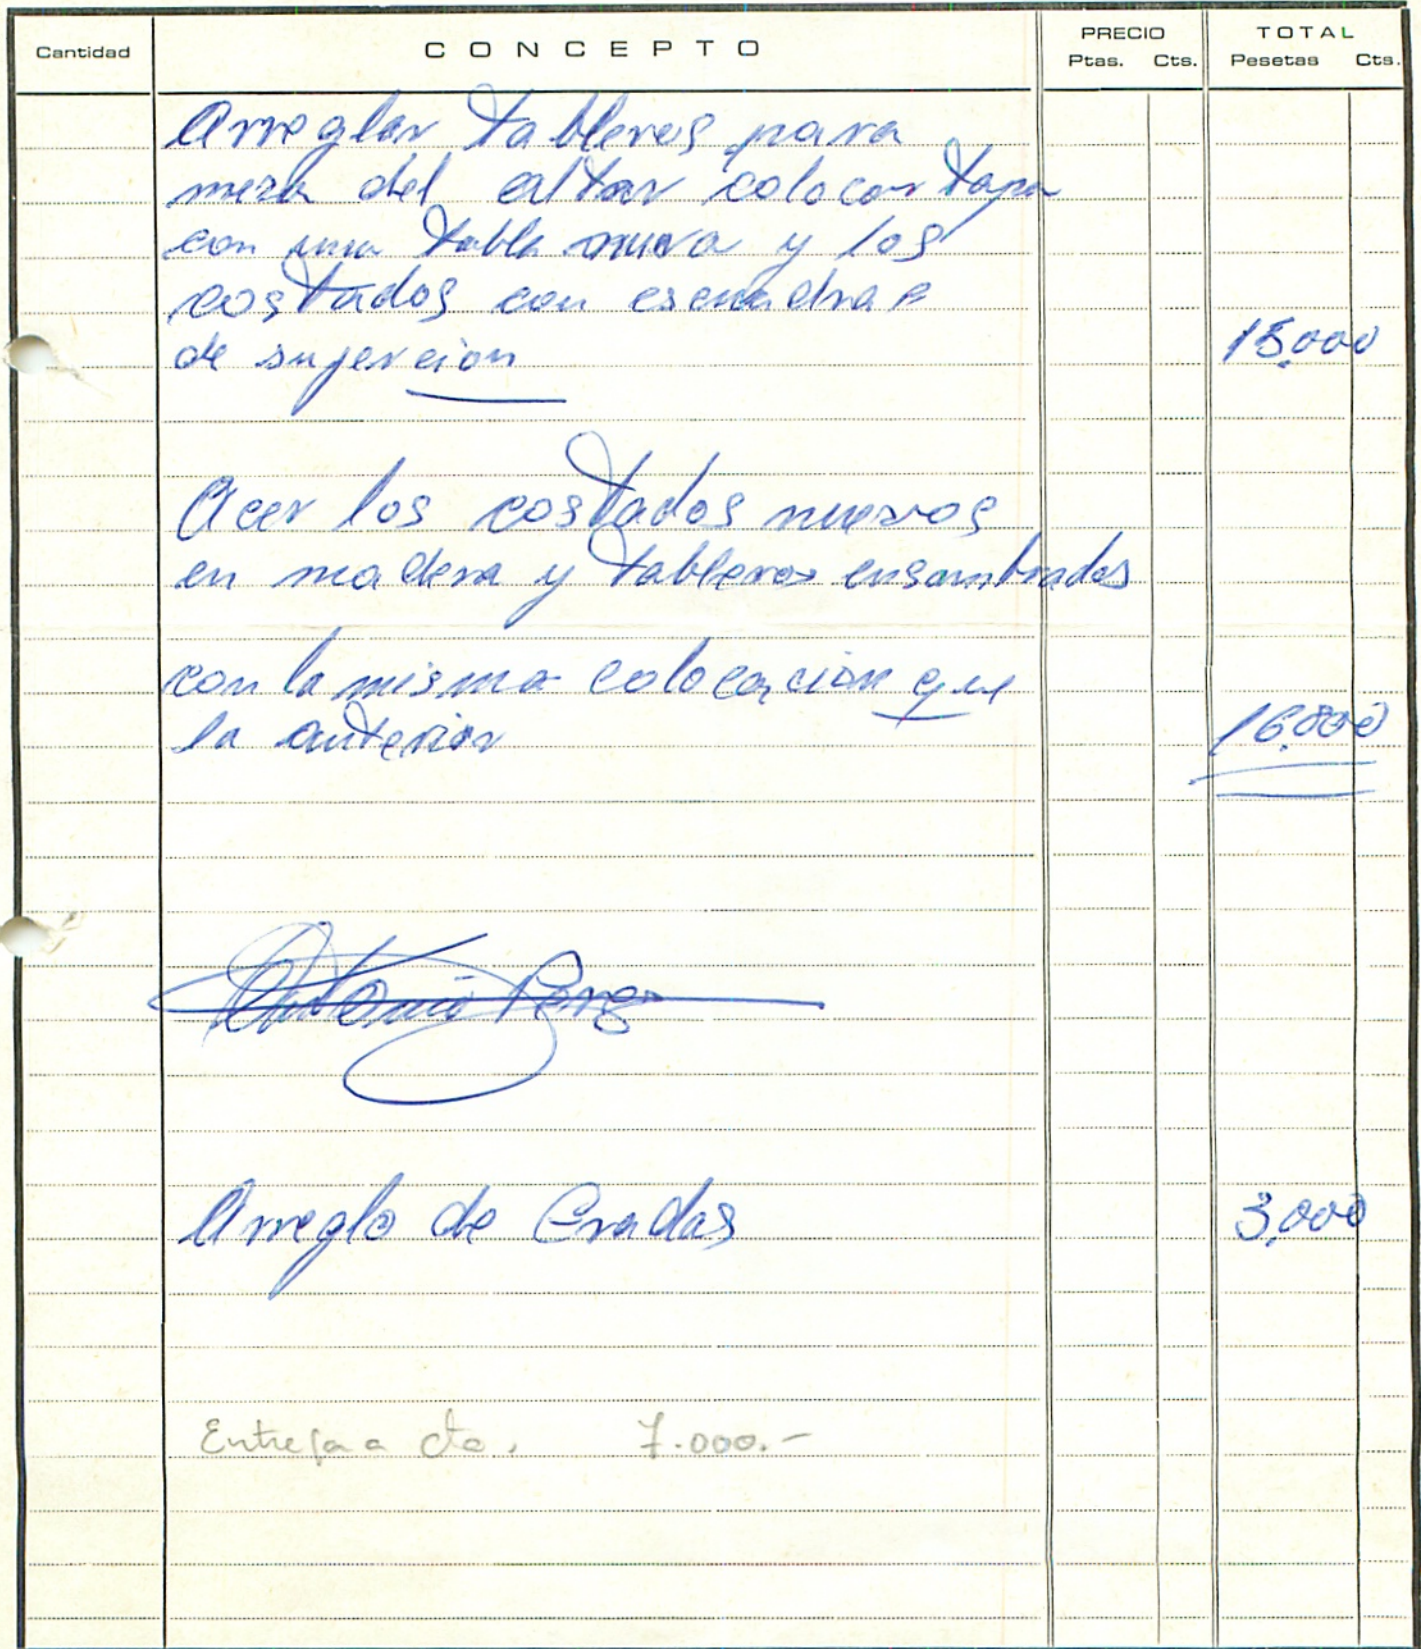 Cantidad CONCEPTO PRECIO TOTAL
Ptas. Cts. Pesetas Cts.
Arreglar tableros para
mesa del altar colocar tapa
con una tabla nueva y los
costados con escuadras
de sujercion 15,000
Acer los costados nuevos
en madera y tableros ensambrados
con la misma colocacion que
la anterior 16.800
Antonio Perez
Arreglo de Gradas 3,000
Entrega a cta. 7.000.-